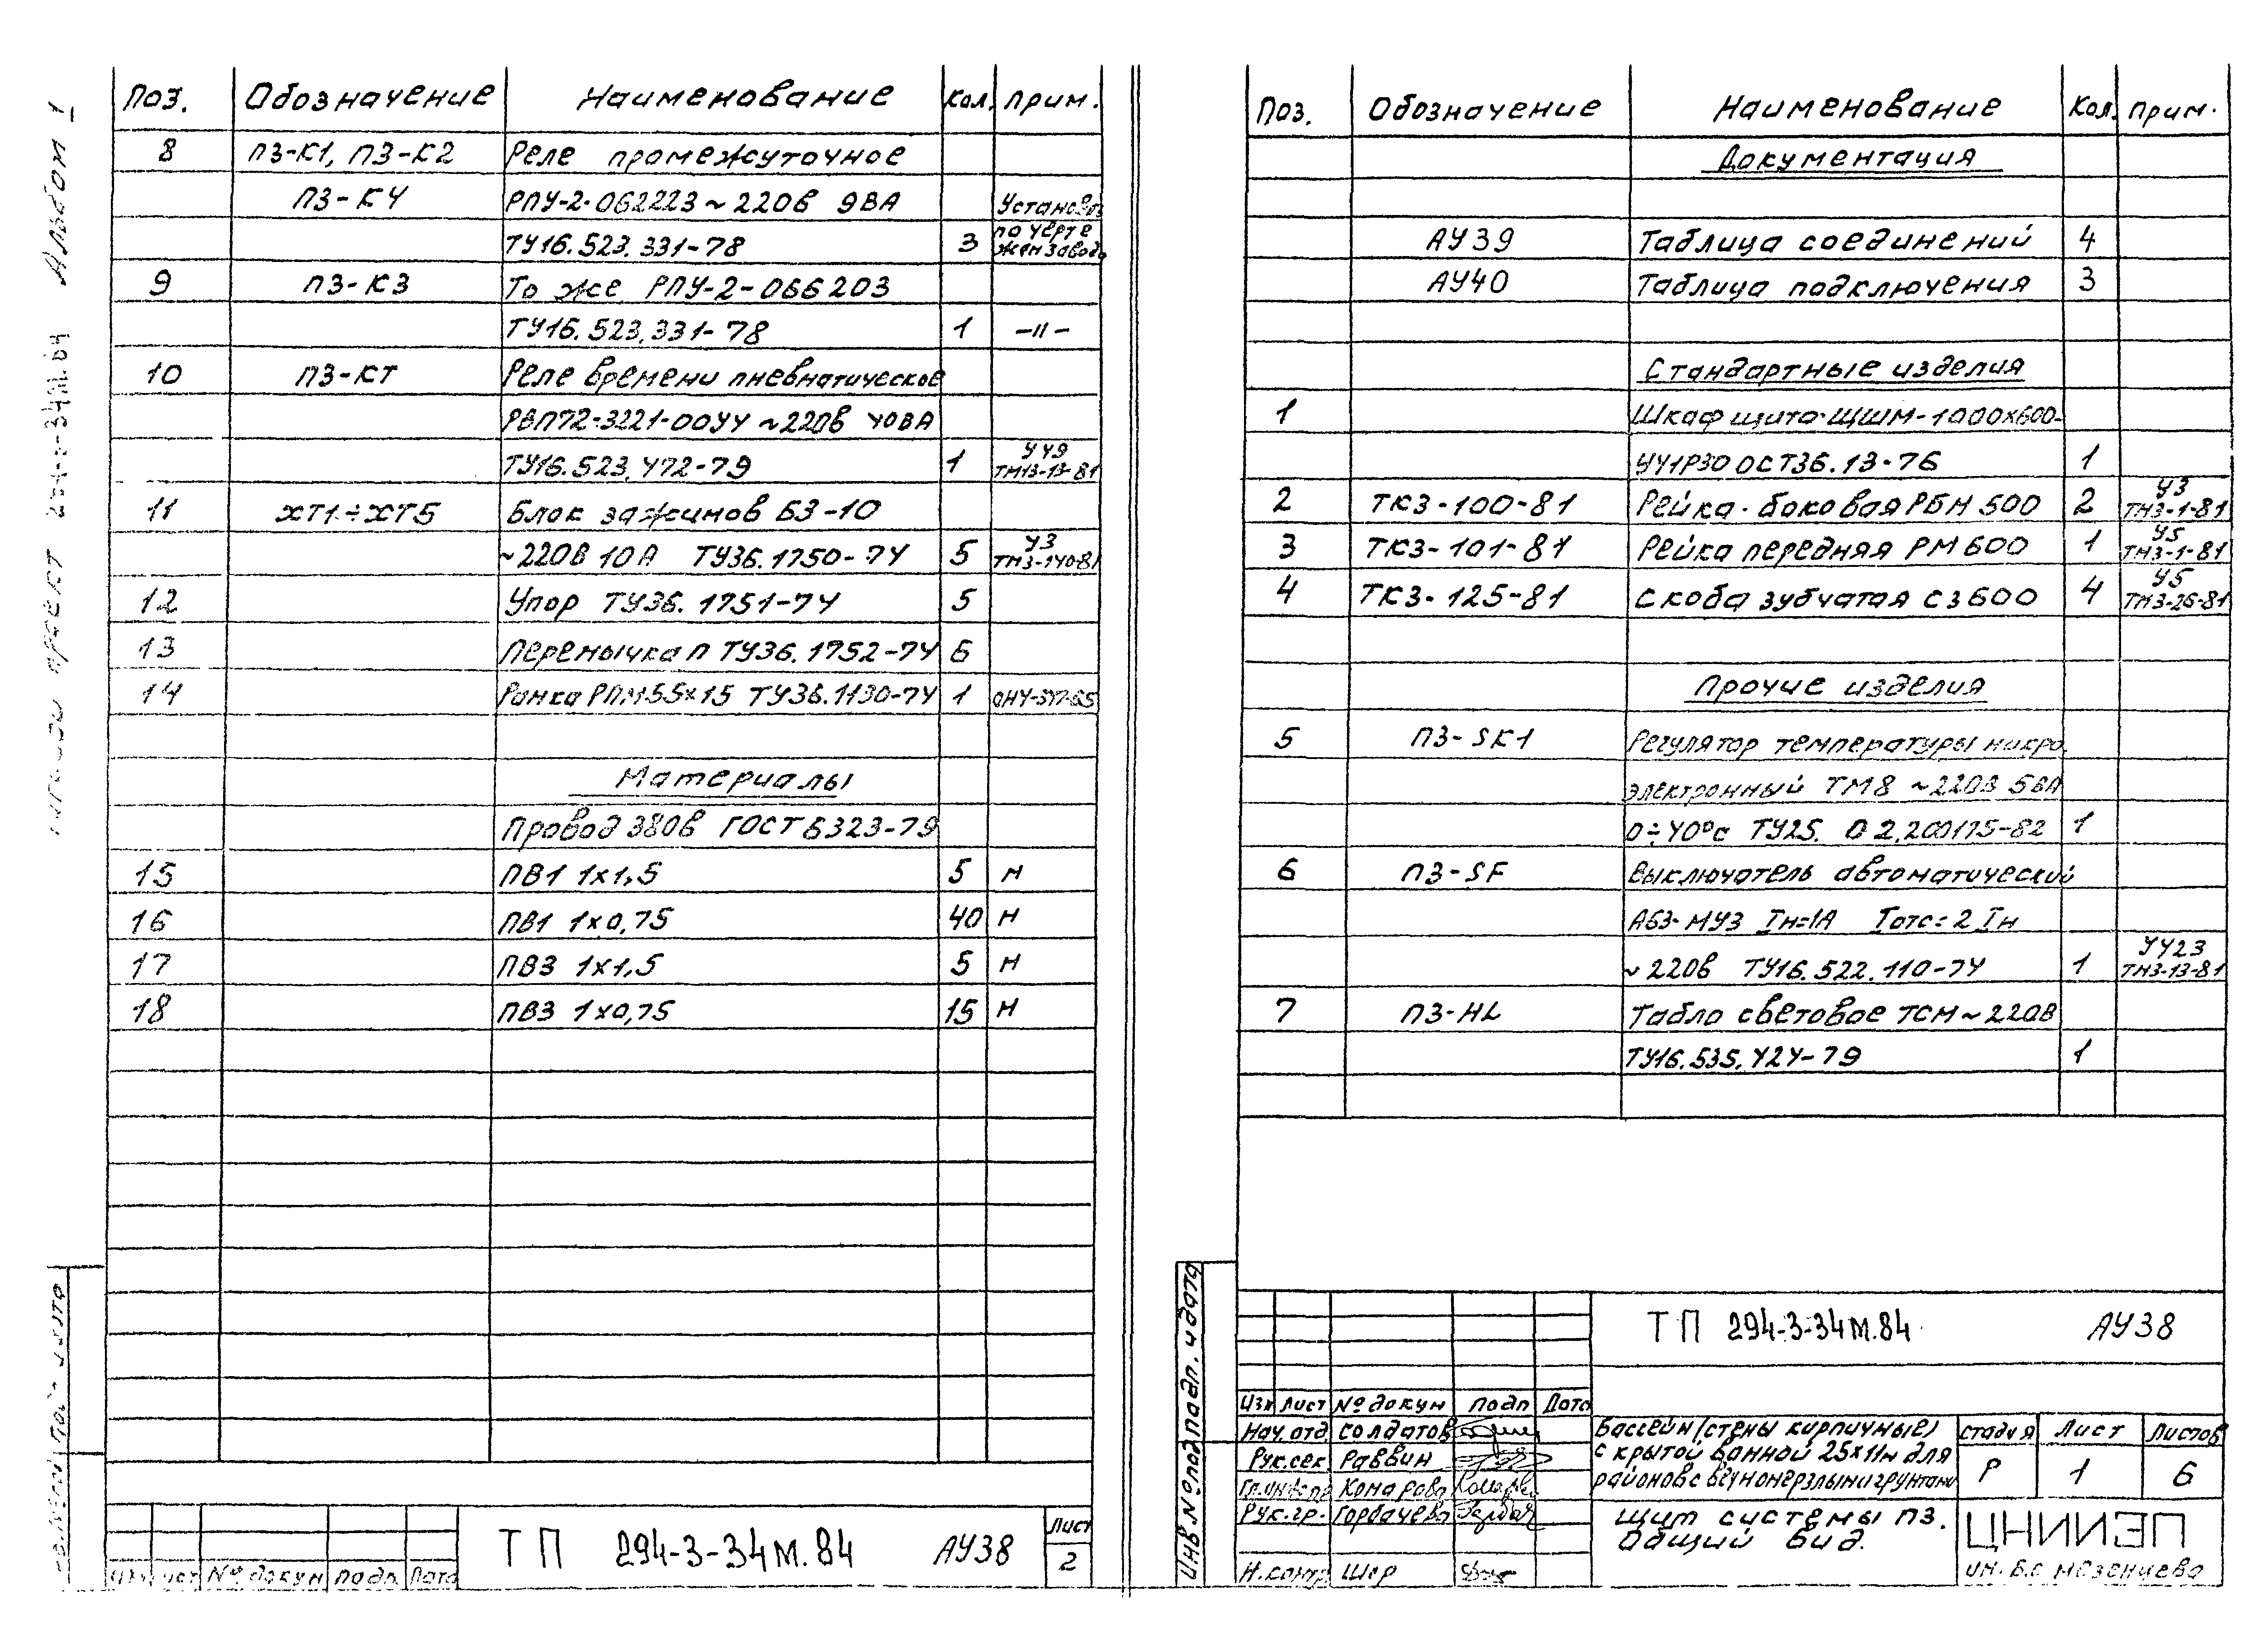 Альбом 1
Поз. Обозначение Наименование Кол. Прим.
8 П3-К1, П3-К2 Реле промежуточное
П3-К4 РПУ-2-062223 ~ 220В 9ВА
ТУ16.523.331-78 3
9 П3-К3 То же РПУ-2-066203
ТУ16.523.331-78 1 -"-
10 П3-КТ Реле времени пневматическое
РВП72-3221-00У4 ~220В 40ВА
ТУ16.523.472-79 1 У49 ТМ13-13-81
11 ХТ1÷ХТ5 Блок зажимов БЗ-10
~220В 10А ТУ36.1750-74 5 У3 ТМ3-140-81
12 Упор ТУ36.1751-74 5
13 Перемычка П ТУ36.1752-74 6
14 Рамка РПМ55х15 ТУ36.1130-74 1
Материалы
Провод 380В ГОСТ 6323-79
15 ПВ1 1х1,5 5 м
16 ПВ1 1х0,75 40 м
17 ПВ3 1х1,5 5 м
18 ПВ3 1х0,75 15 м
№ докум подп. Дата
ТП 294-3-34м.84 АУ38
Лист
2
Поз. Обозначение Наименование Кол. Прим.
Документация
АУ39 Таблица соединений 4
АУ40 Таблица подключения 3
Стандартные изделия
1 Шкаф щита ЩШМ-1000х600-
УЧ1Р30 ОСТ36.13-76 1
2 ТК3-100-81 Рейка боковая РБМ 500 2 У3 ТМ3-1-81
3 ТК3-101-81 Рейка передняя РМ600 1 У5 ТМ3-1-81
4 ТК3-125-81 Скоба зубчатая СЗ600 4 У5 ТМ3-26-81
Прочие изделия
5 П3-SK1 Регулятор температуры микро
электронный ТМ8 ~220В 5ВА
0÷40°С ТУ25. 02.200175-82 1
6 П3-SF Выключатель автоматический
А63-МУ3 Iн=1А Iотс=2 Iн
~220В ТУ16.522.110-74 1 УУ23 ТМ3-13-81
7 П3-HL Табло световое ТСМ ~220В
ТУ16.535.424-79 1
Инв № подл подп. и дата
ТП 294-3-34м.84 АУ38
Изм Лист № докум подп Дата
Нач. отд. Солдатов
Рук.сек. Раввин
Гл.инж.пр Комарова
Рук.гр. Горбачева
Н.контр Шер
Бассейн (стены кирпичные)
с крытой ванной 25х11м для
районов с вечномерзлыми грунтами
Стадия Лист Листов
Р 1 6
Щит системы П3.
Общий вид.
ЦНИИЭП
им. Б.С. Мезенцева